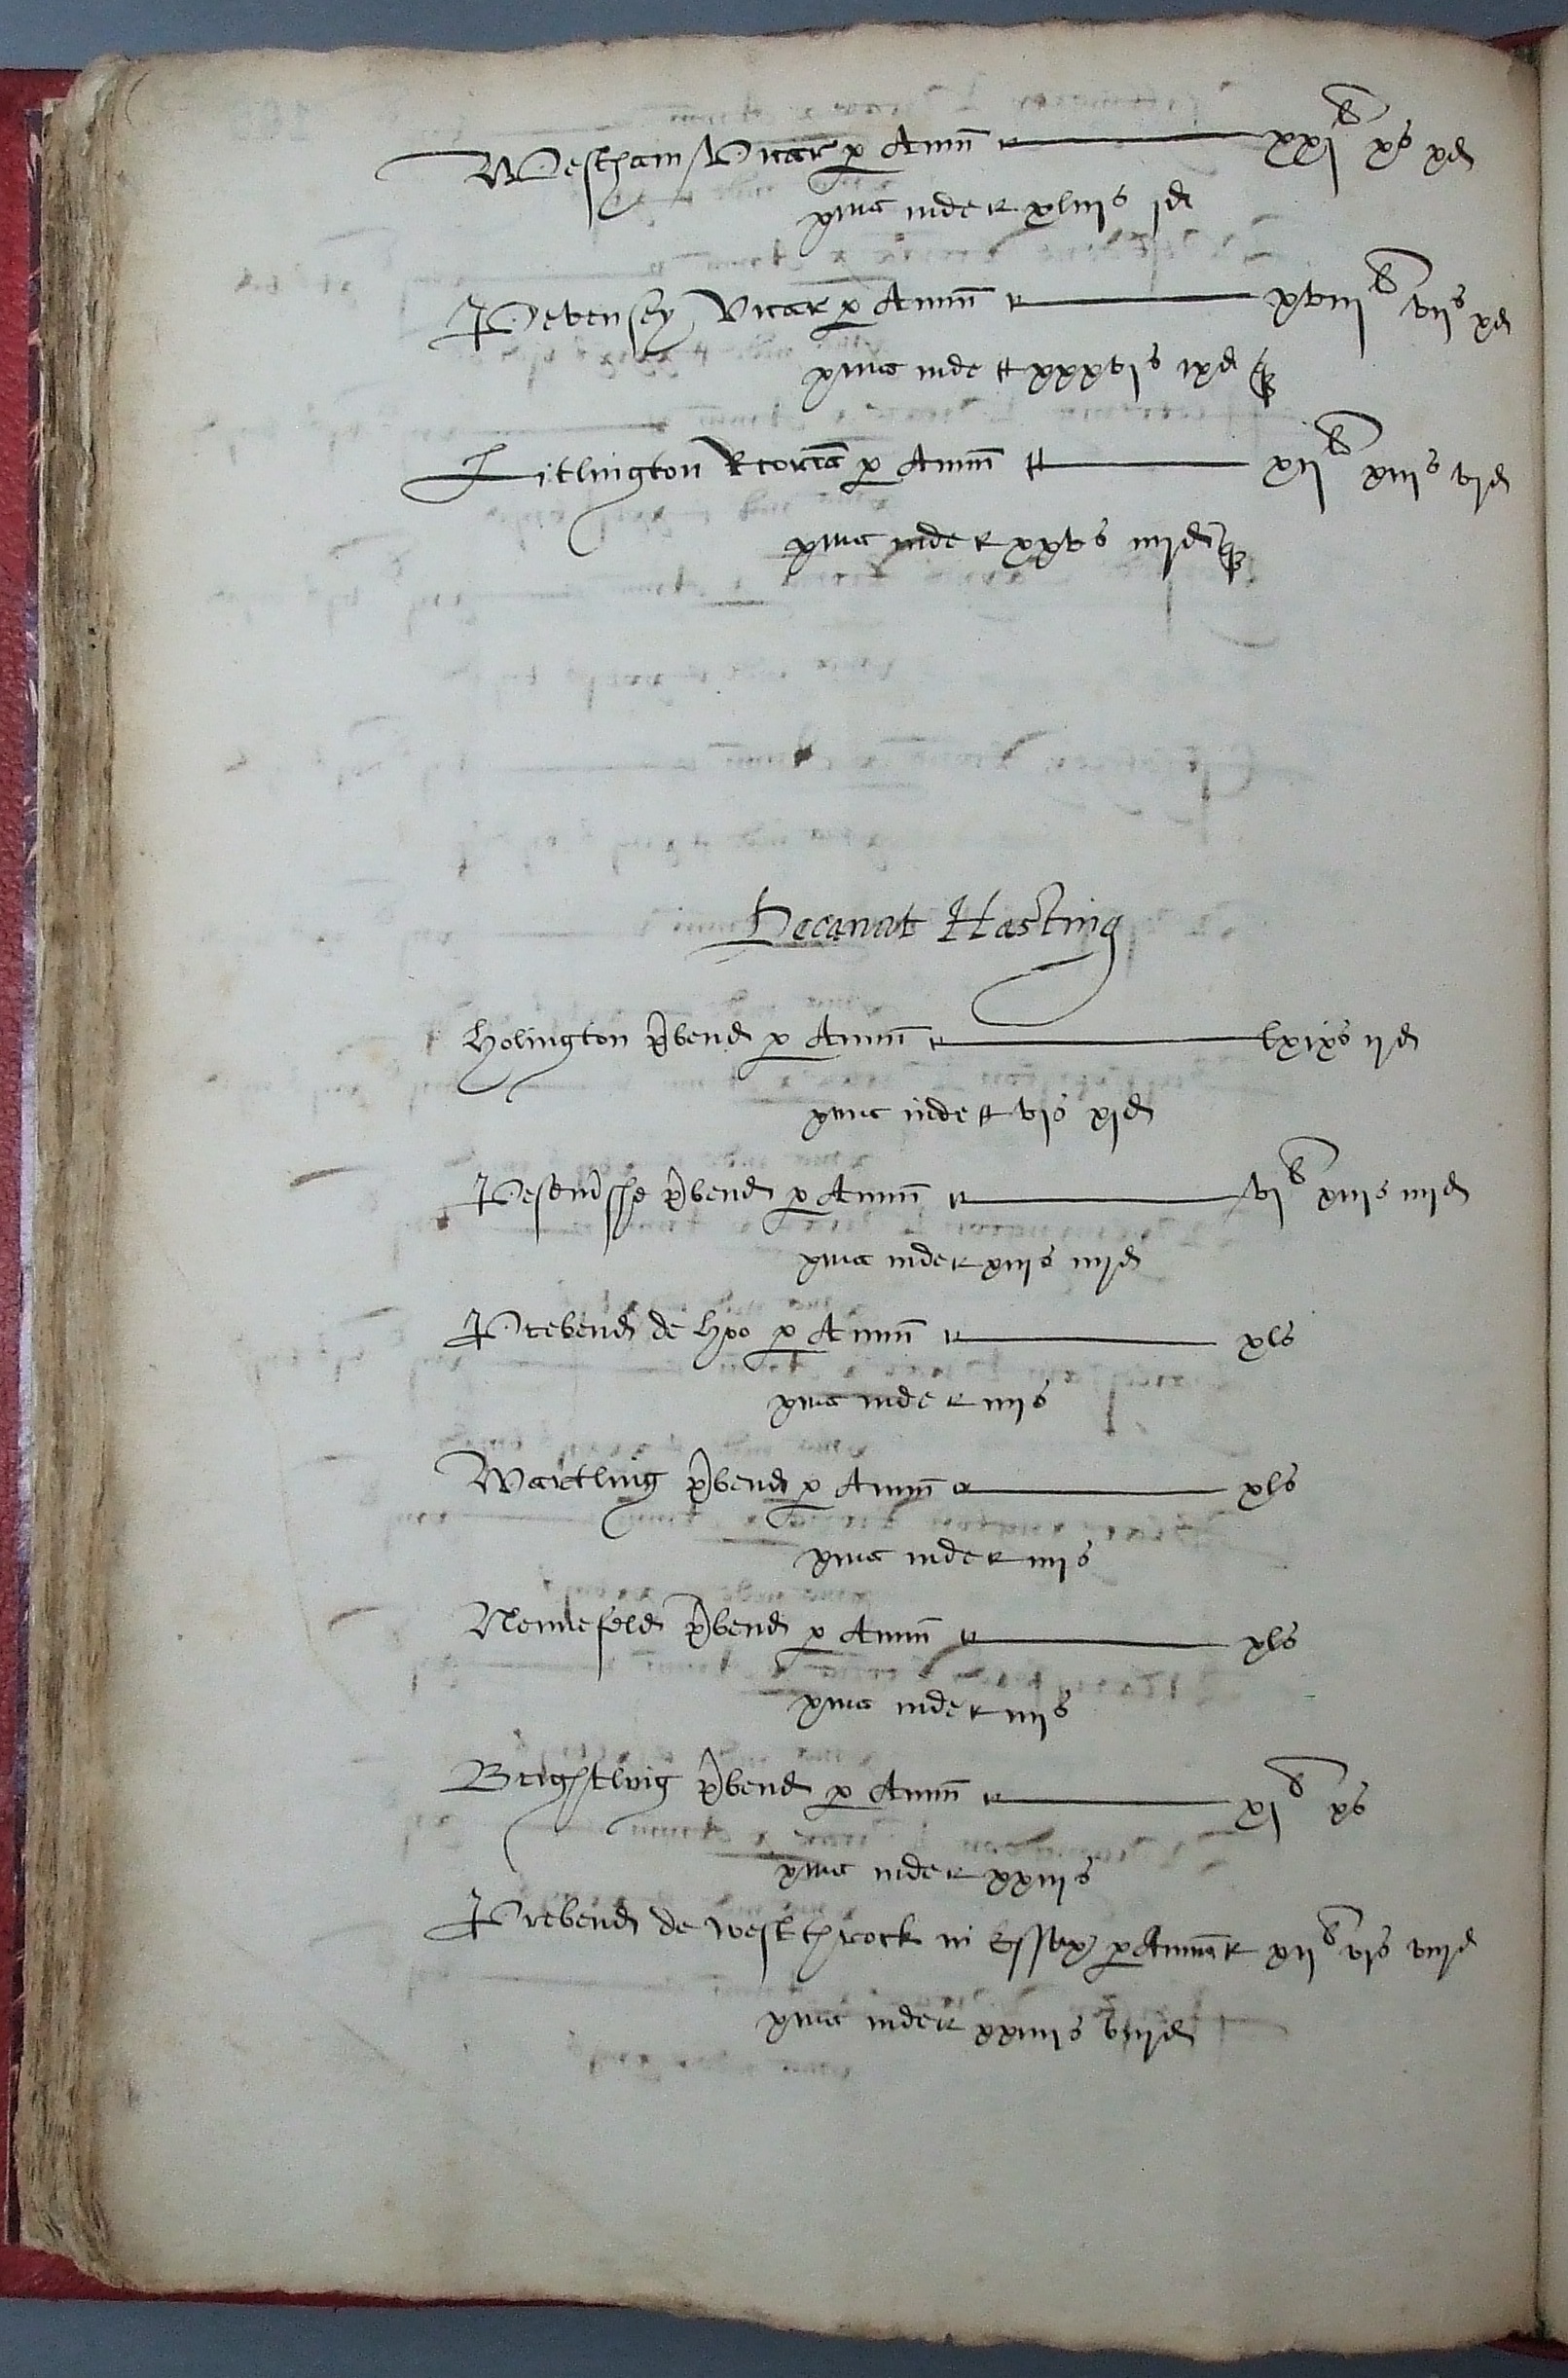 Westham Vicar p Annu̅ xxj£ xs xd
xma inde xliijs jd
Pevensey Vicar p Annu̅ xviij£ vijs xd
xma inde xxxvjs ixd q
Litlington Rcoria p Annu̅ xij£ xiijs vjd
xma inde xxvs iiijd q
Decanat Hasting
Holington p̲bend p Annu̅ lxixs ijd
xma inde vjs xjd
p̲bend p Annu̅ vj£ xiijs iiijd
xma inde xiijs iiijd
Prebend de hoo p Annu̅ xls
xma inde iiijs
Wartling p̲bend p Annu̅ xls
xma inde iiijs
Nennefeld p̲bend p Annu̅ xls
xma inde iiijs
Brightling p̲bend p Annu̅ xj£ xs
xma inde xxiijs
Prebend de westthrock in Essex p Annu̅ xij£ vjs viijd
xma inde xxiiijs viijd